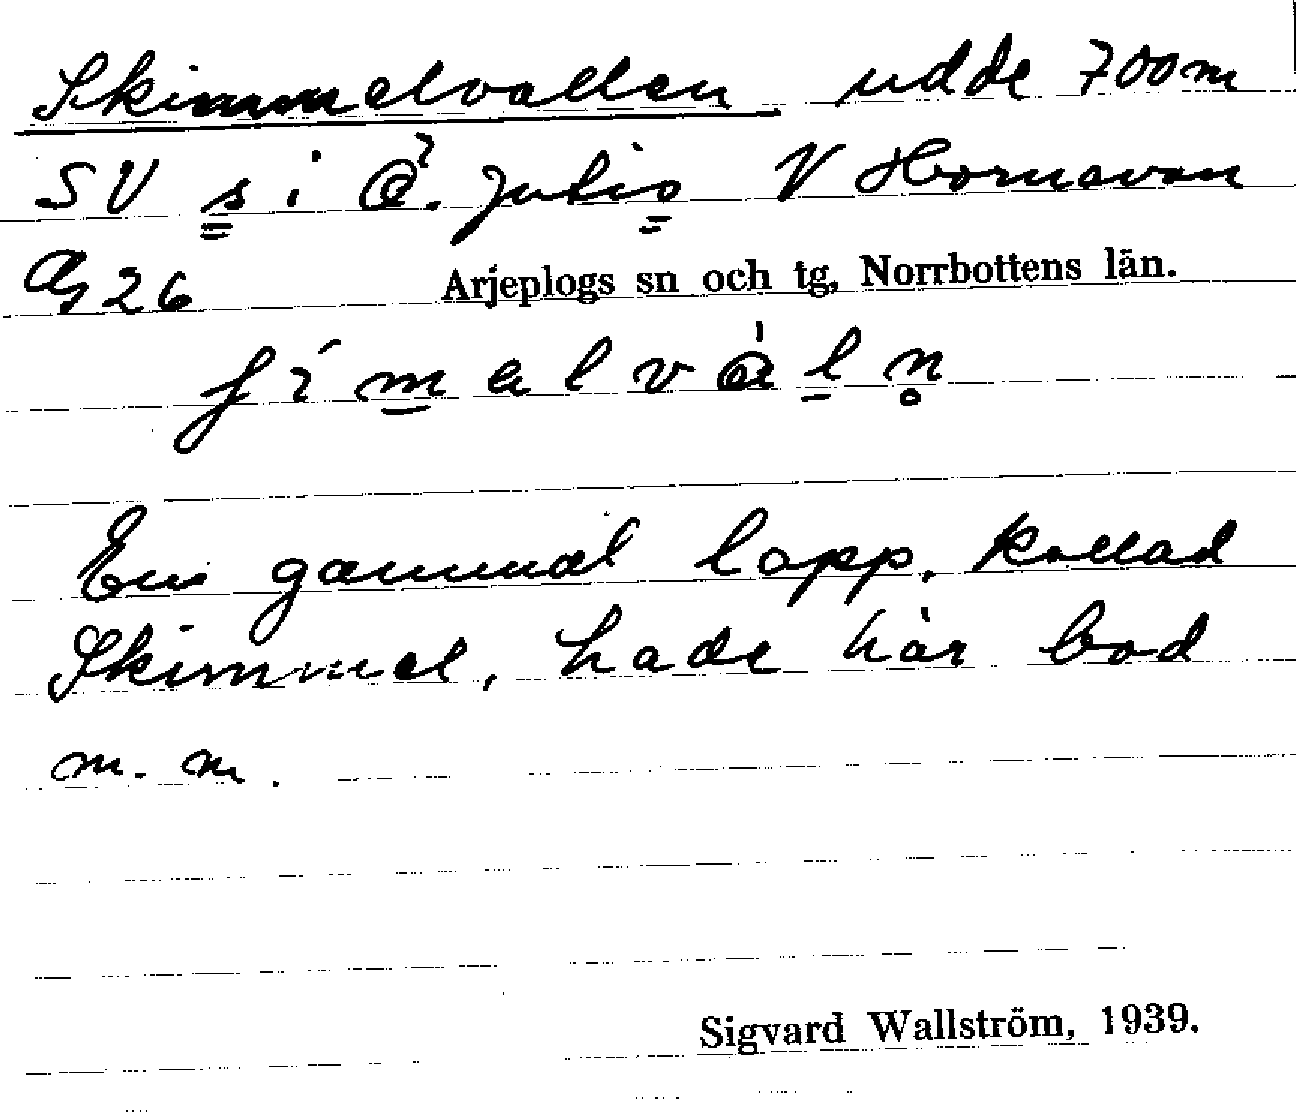 Skimmelvallen udde 700m
SV s i Jutis V Hornavan
26 Arjeplogs sn och tg, Norrbottens län.
En gammal lapp, kallad
Skimmel, hade här bod
m. m.
Sigvard Wallström, 1939.